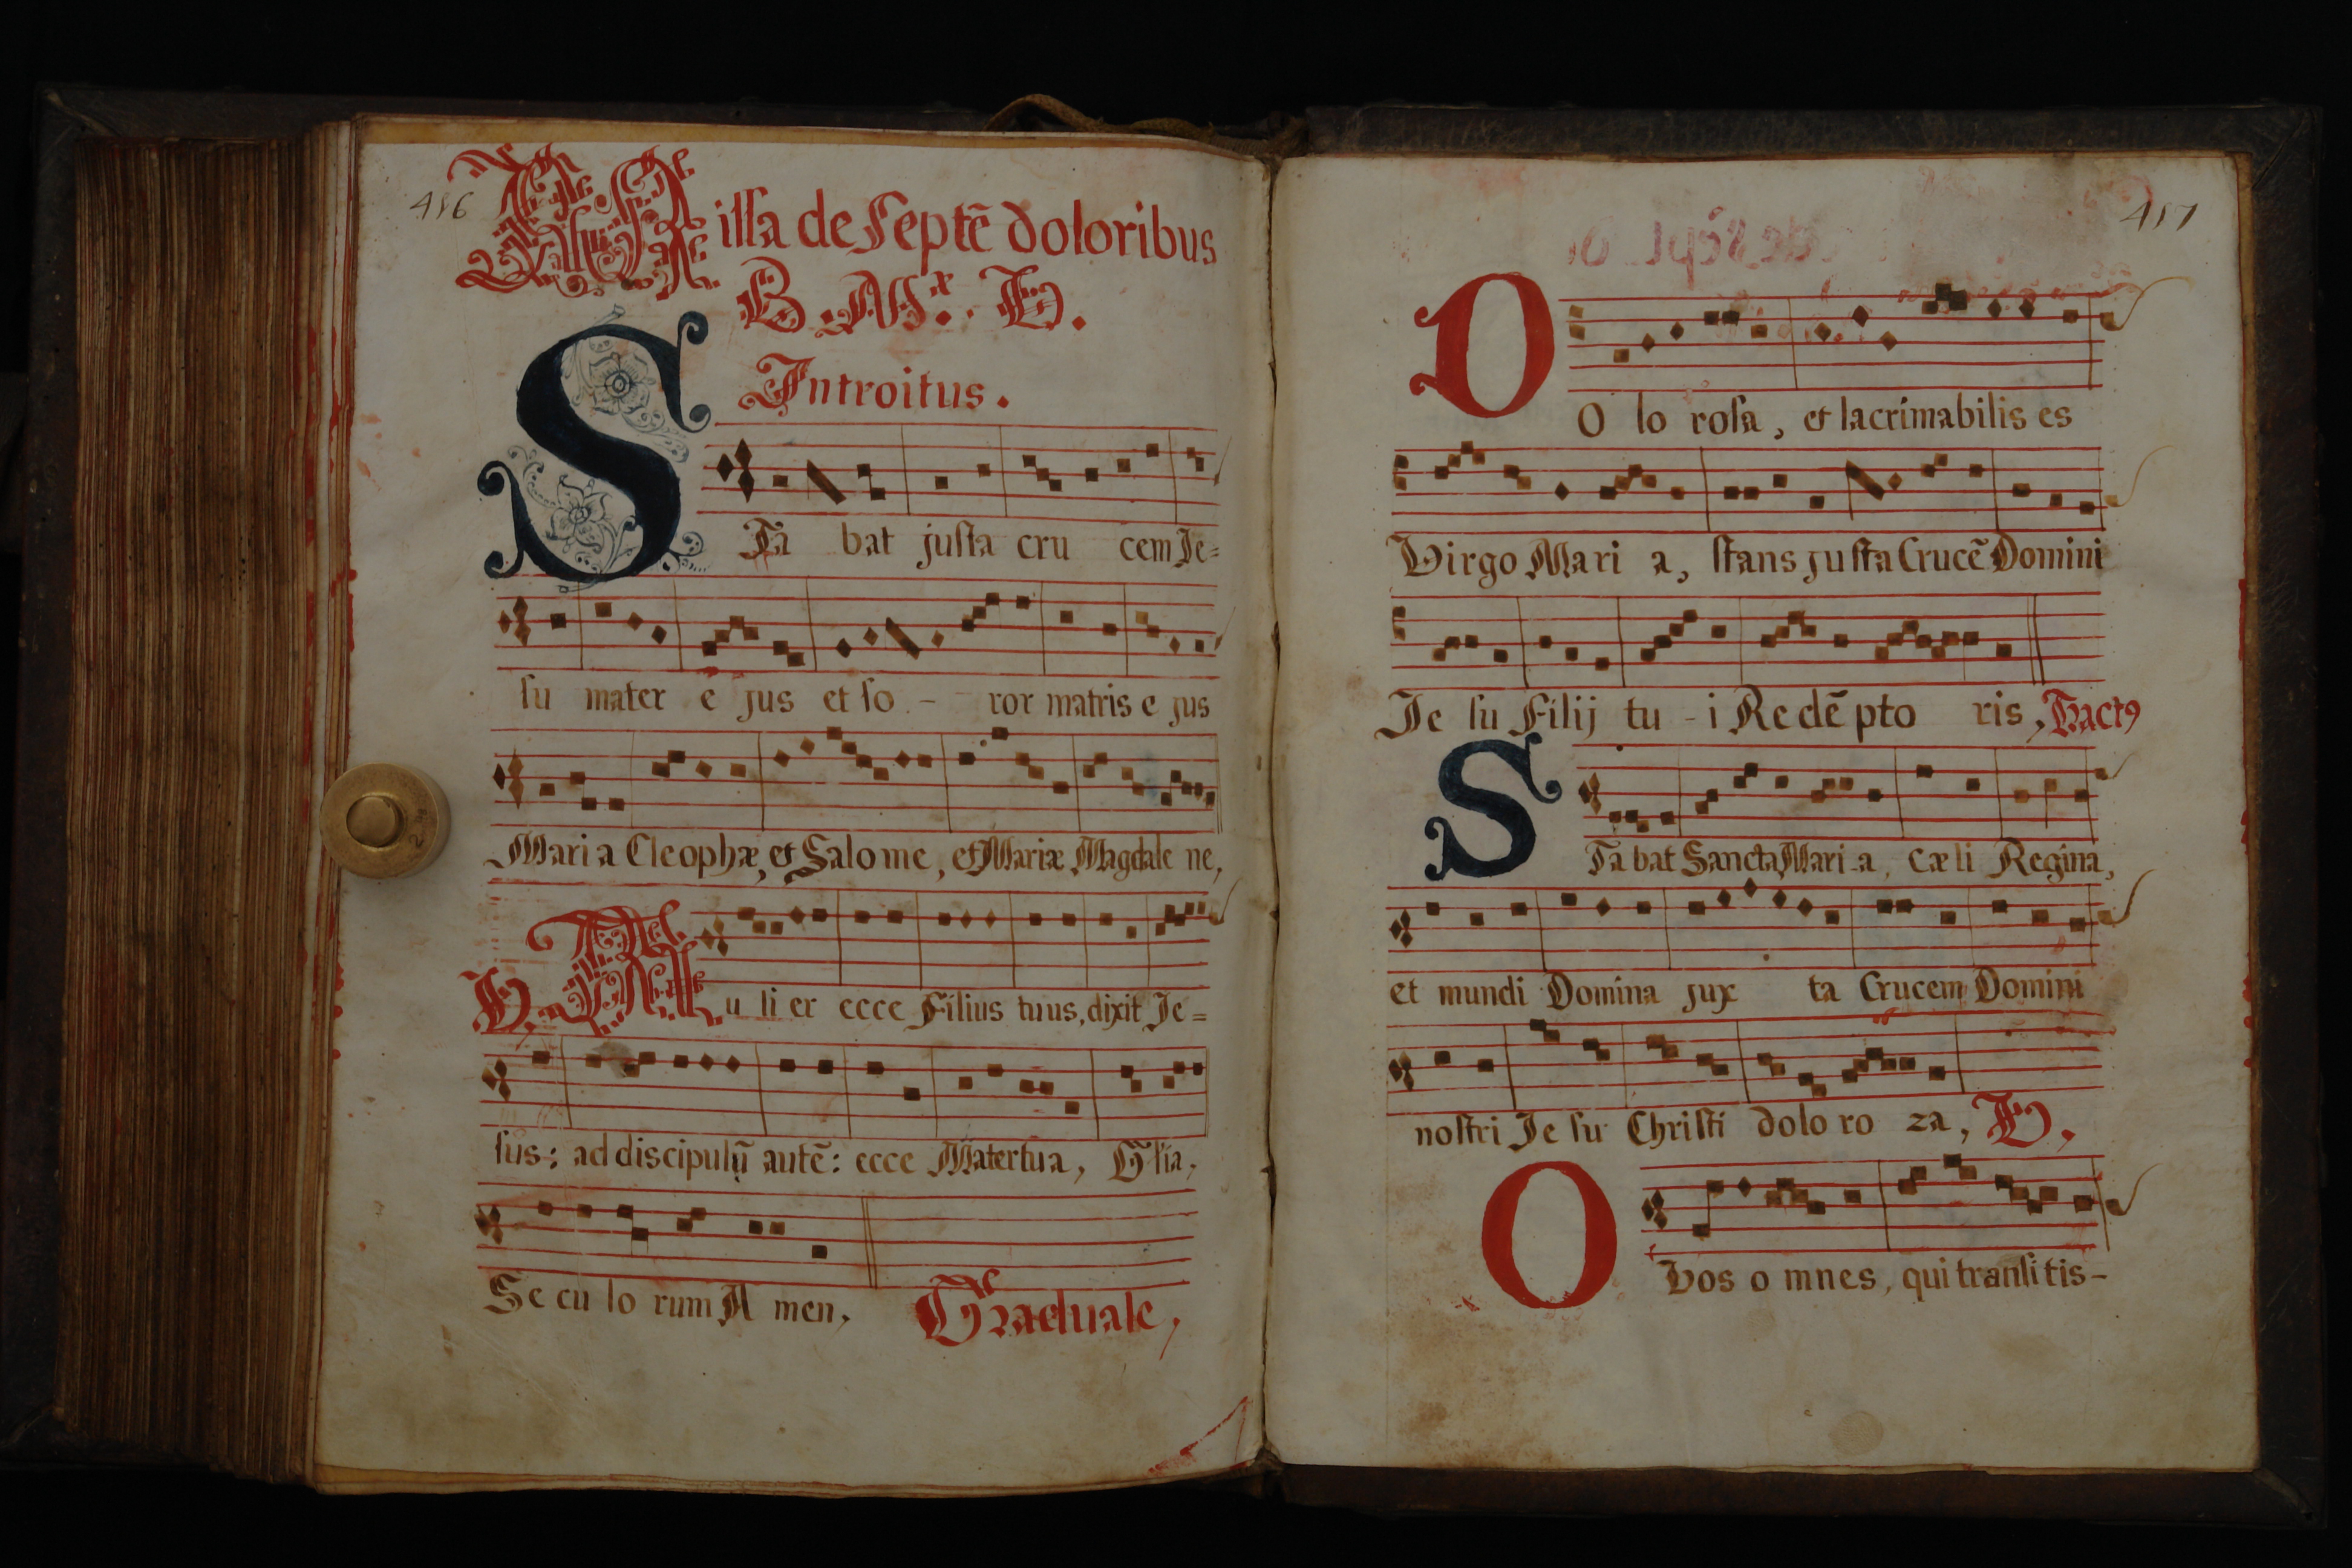 416
Missa de Septē doloribus
B. M.ᵃ V.
Introitus.
STa bat justa cru cem Je=
su mater e jus et so - ror matris e jus
Mari a Cleophæ, et Salo me, et Mariæ Magdale ne,
V. Mu li er ecce Filius tuus, dixit Je=
sus: ad discipulū autē: ecce Mater tua, Gl̄ia,
Se cu lo rum A men, Graduale,
417
DO lo rosa, et lacrimabilis es
Virgo Mari a, stans justa Crucē Domini
Je su Filij tu - i Re dē pto ris, Tractꝯ
STa bat Sancta Mari-a, cæ li Regina,
et mundi Domina jux ta Crucem Domini
nostri Je su Christi dolo ro za, V,
O Vos o mnes, qui transi tis-